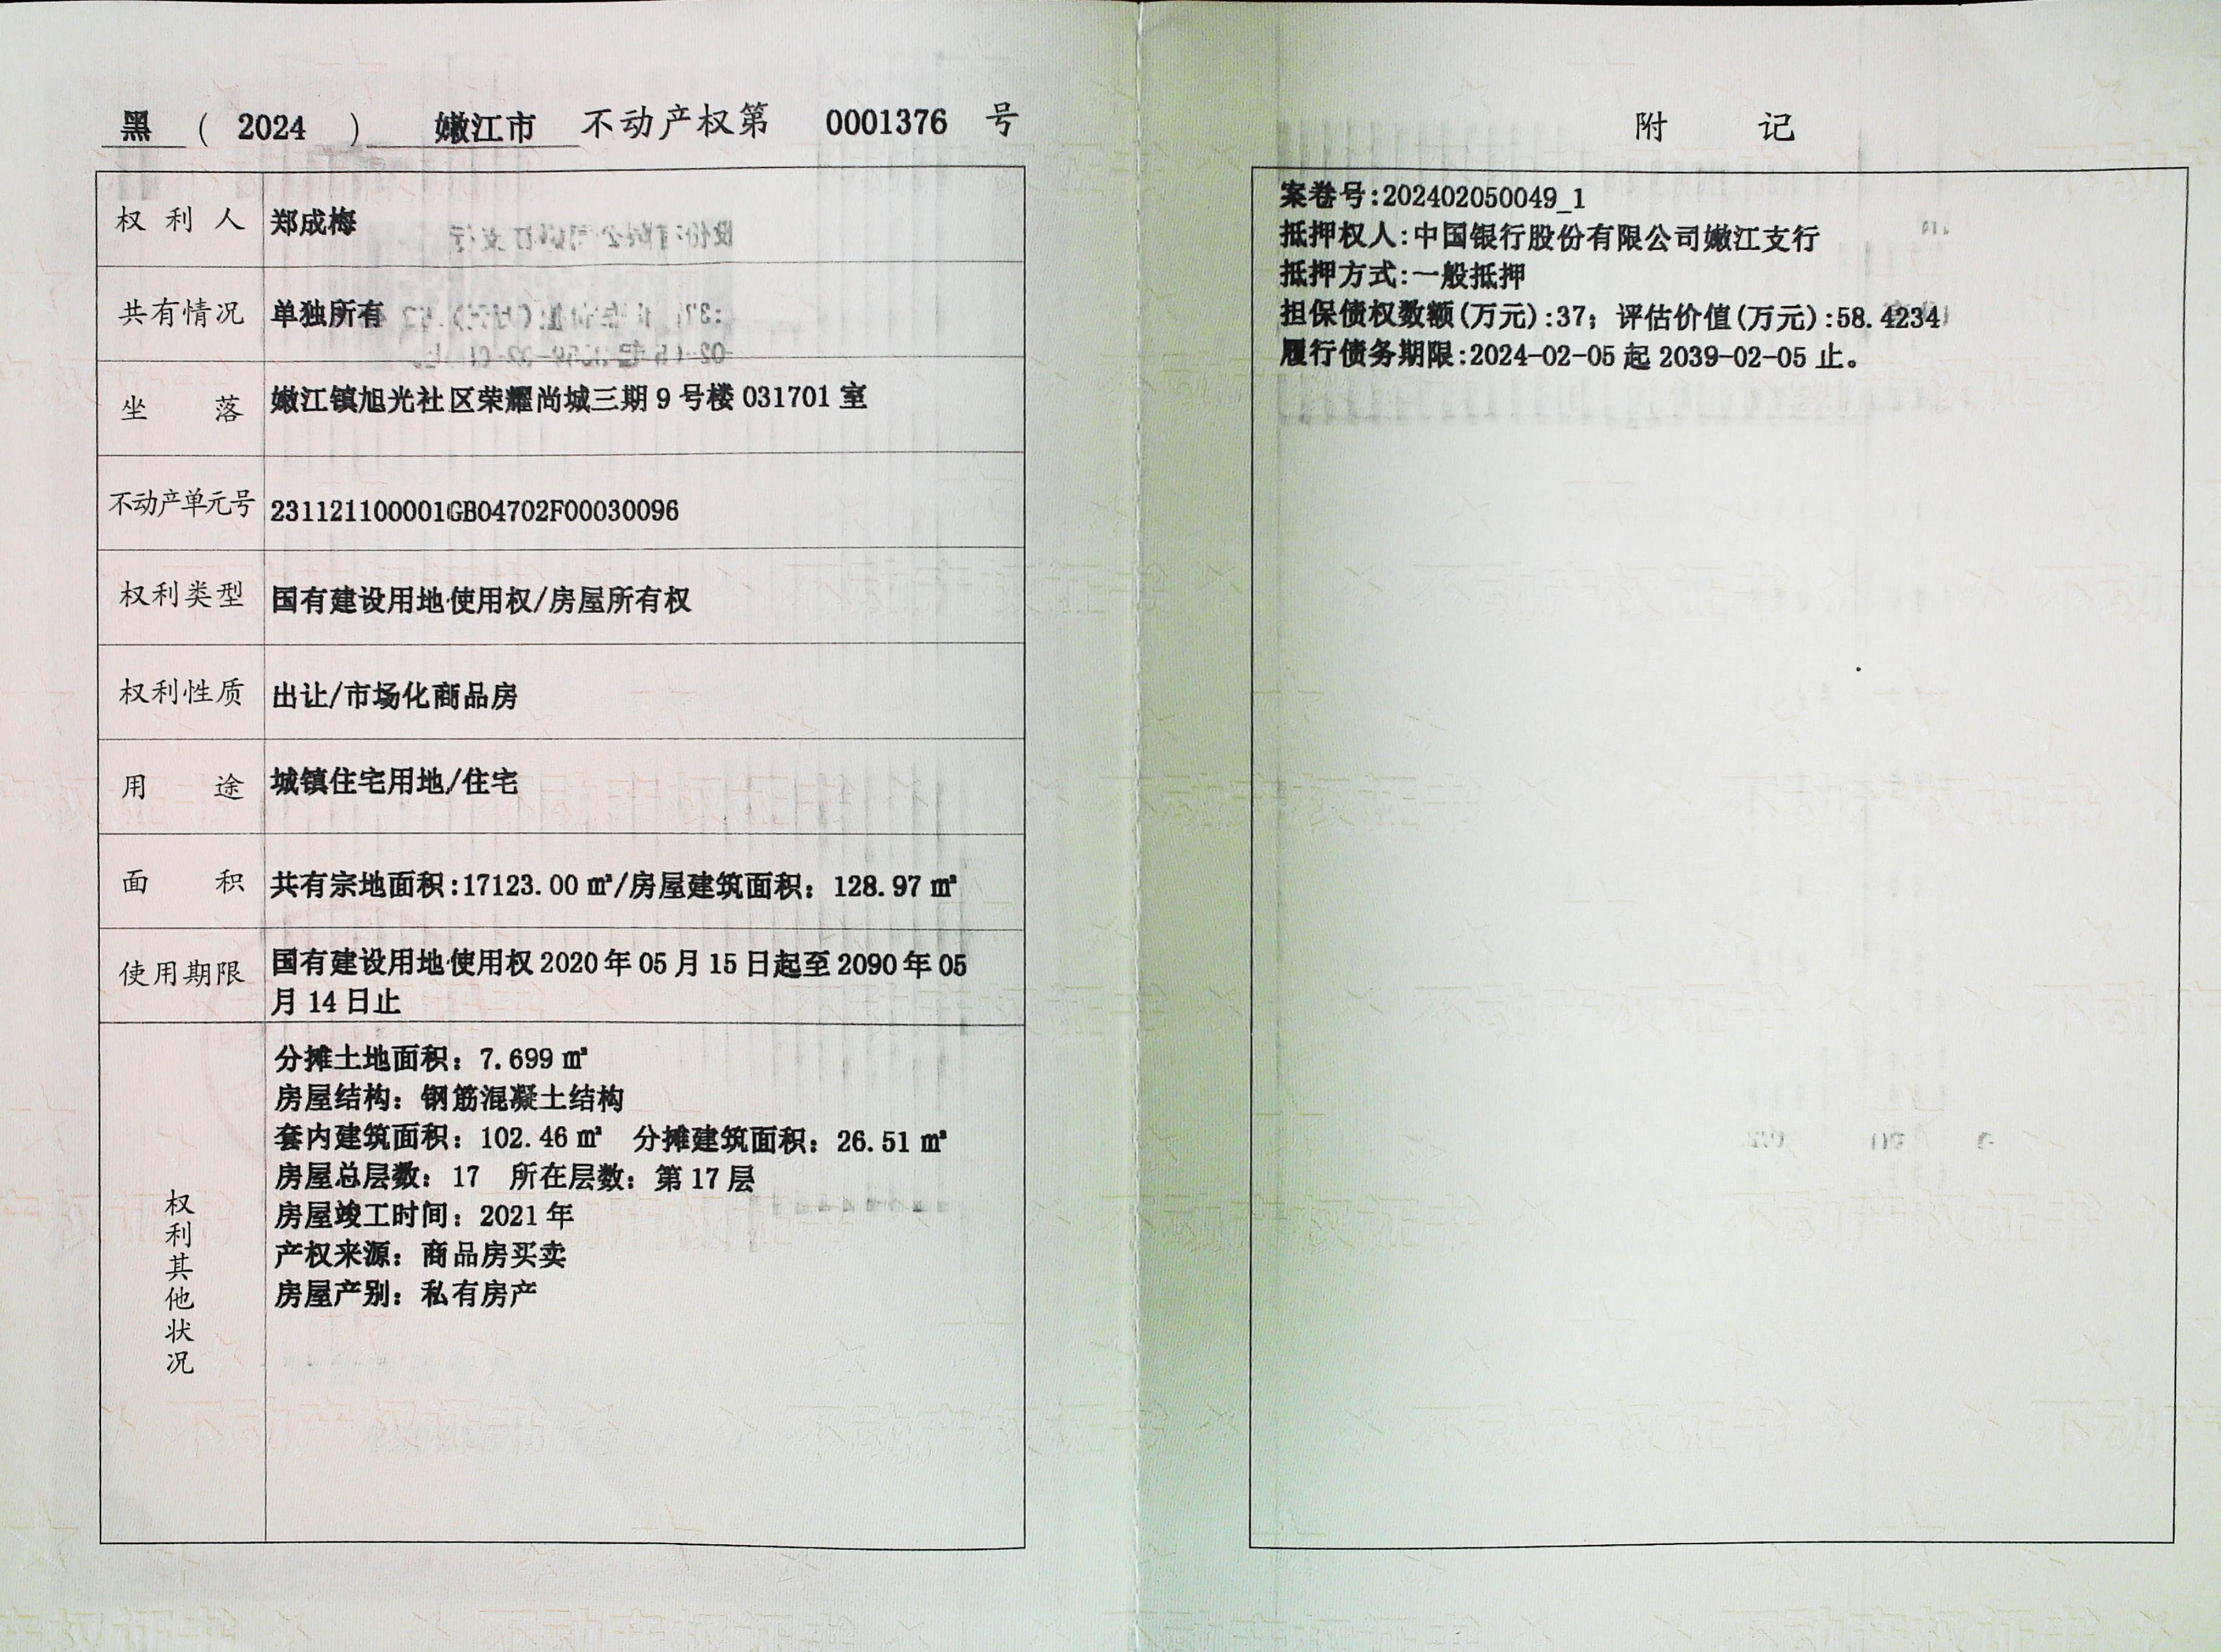 黑 ( 2024 ) 嫩江市 不动产权第 0001376 号
权利人 郑成梅
共有情况 单独所有
坐落 嫩江镇旭光社区荣耀尚城三期 9 号楼 031701 室
不动产单元号 231121100001GB04702F00030096
权利类型 国有建设用地使用权/房屋所有权
权利性质 出让/市场化商品房
用途 城镇住宅用地/住宅
面积 共有宗地面积:17123.00 ㎡/房屋建筑面积：128.97 ㎡
使用期限 国有建设用地使用权 2020 年 05 月 15 日起至 2090 年 05
月 14 日止
权利其他状况
分摊土地面积：7.699 ㎡
房屋结构：钢筋混凝土结构
套内建筑面积：102.46 ㎡ 分摊建筑面积：26.51 ㎡
房屋总层数：17 所在层数：第 17 层
房屋竣工时间：2021 年
产权来源：商品房买卖
房屋产别：私有房产
附记
案卷号:202402050049_1
抵押权人:中国银行股份有限公司嫩江支行
抵押方式:一般抵押
担保债权数额(万元):37；评估价值(万元):58.4234
履行债务期限:2024-02-05 起 2039-02-05 止。